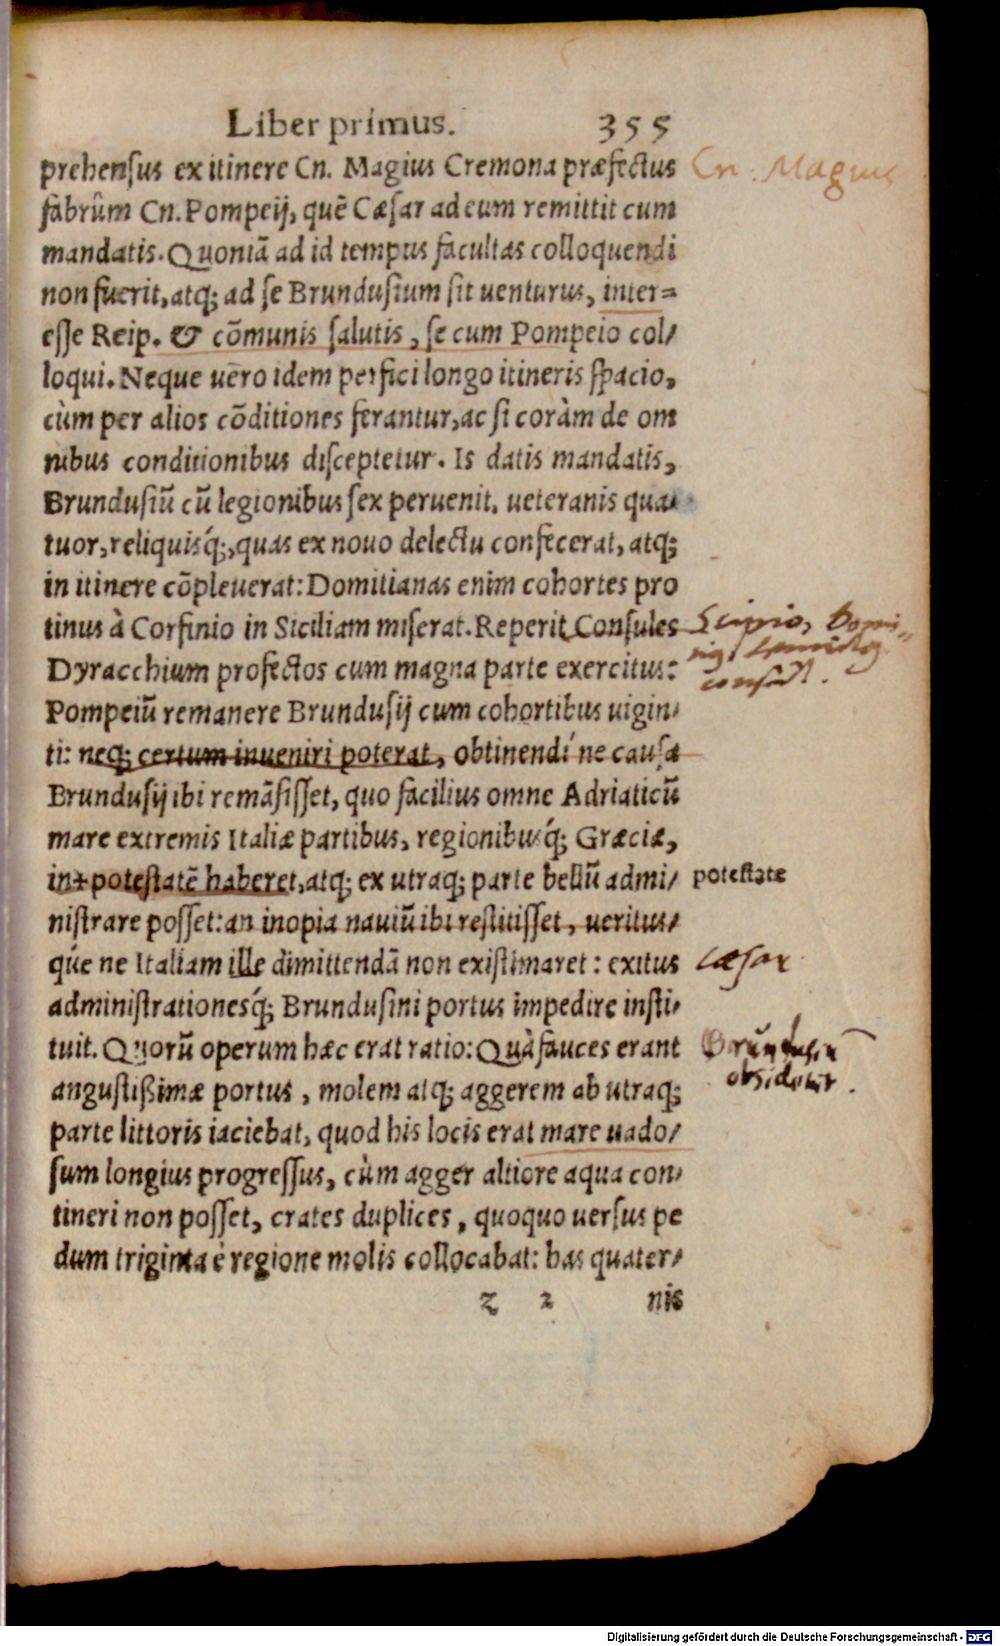 Liber primus. 355
prehensus ex itinere Cn. Magius Cremona præfectus
fabrûm Cn. Pompeij, quẽ Cæsar ad eum remittit cum
mandatis. Quoniã ad id tempus facultas colloquendi
non fuerit, atq; ad se Brundusium sit uenturus, inter=
esse Reip. & cõmunis salutis, se cum Pompeio col/
loqui. Neque uẽro idem perfici longo itineris spacio,
cùm per alios cõditiones ferantur, ac si coràm de om
nibus conditionibus disceptetur. Is datis mandatis,
Brundusiũ cũ legionibus sex peruenit, ueteranis qua/
tuor, reliquisq́;, quas ex nouo delectu confecerat, atq;
in itinere cõpleuerat: Domitianas enim cohortes pro
tinus à Corfinio in Siciliam miserat. Reperit Consules
Dyracchium profectos cum magna parte exercitus:
Pompeiũ remanere Brundusij cum cohortibus uigin/
ti: neq; certum inueniri poterat, obtinendi ne causa
Brundusij ibi remãsisset, quo facilius omne Adriaticũ
mare extremis Italiæ partibus, regionibusq́; Græciæ,
in potestatẽ haberet, atq; ex utraq; parte bellũ admi/
nistrare posset: an inopia nauiũ ibi restitisset, ueritus/
q́ue ne Italiam ille dimittendã non existimaret: exitus
administrationesq́; Brundusini portus impedire insti/
tuit. Quorũ operum hæc erat ratio: Quà fauces erant
angustißimæ portus, molem atq; aggerem ab utraq;
parte littoris iaciebat, quod his locis erat mare uado/
sum longius progressus, cùm agger altiore aqua con/
tineri non posset, crates duplices, quoquo uersus pe
dum triginta è regione molis collocabat: has quater/
z 2 nis
Cn. Magius
Scipio,
potestate
cæsar
Brundusiũ
obsidetur.
Digitalisierung gefördert durch die Deutsche Forschungsgemeinschaft - DFG